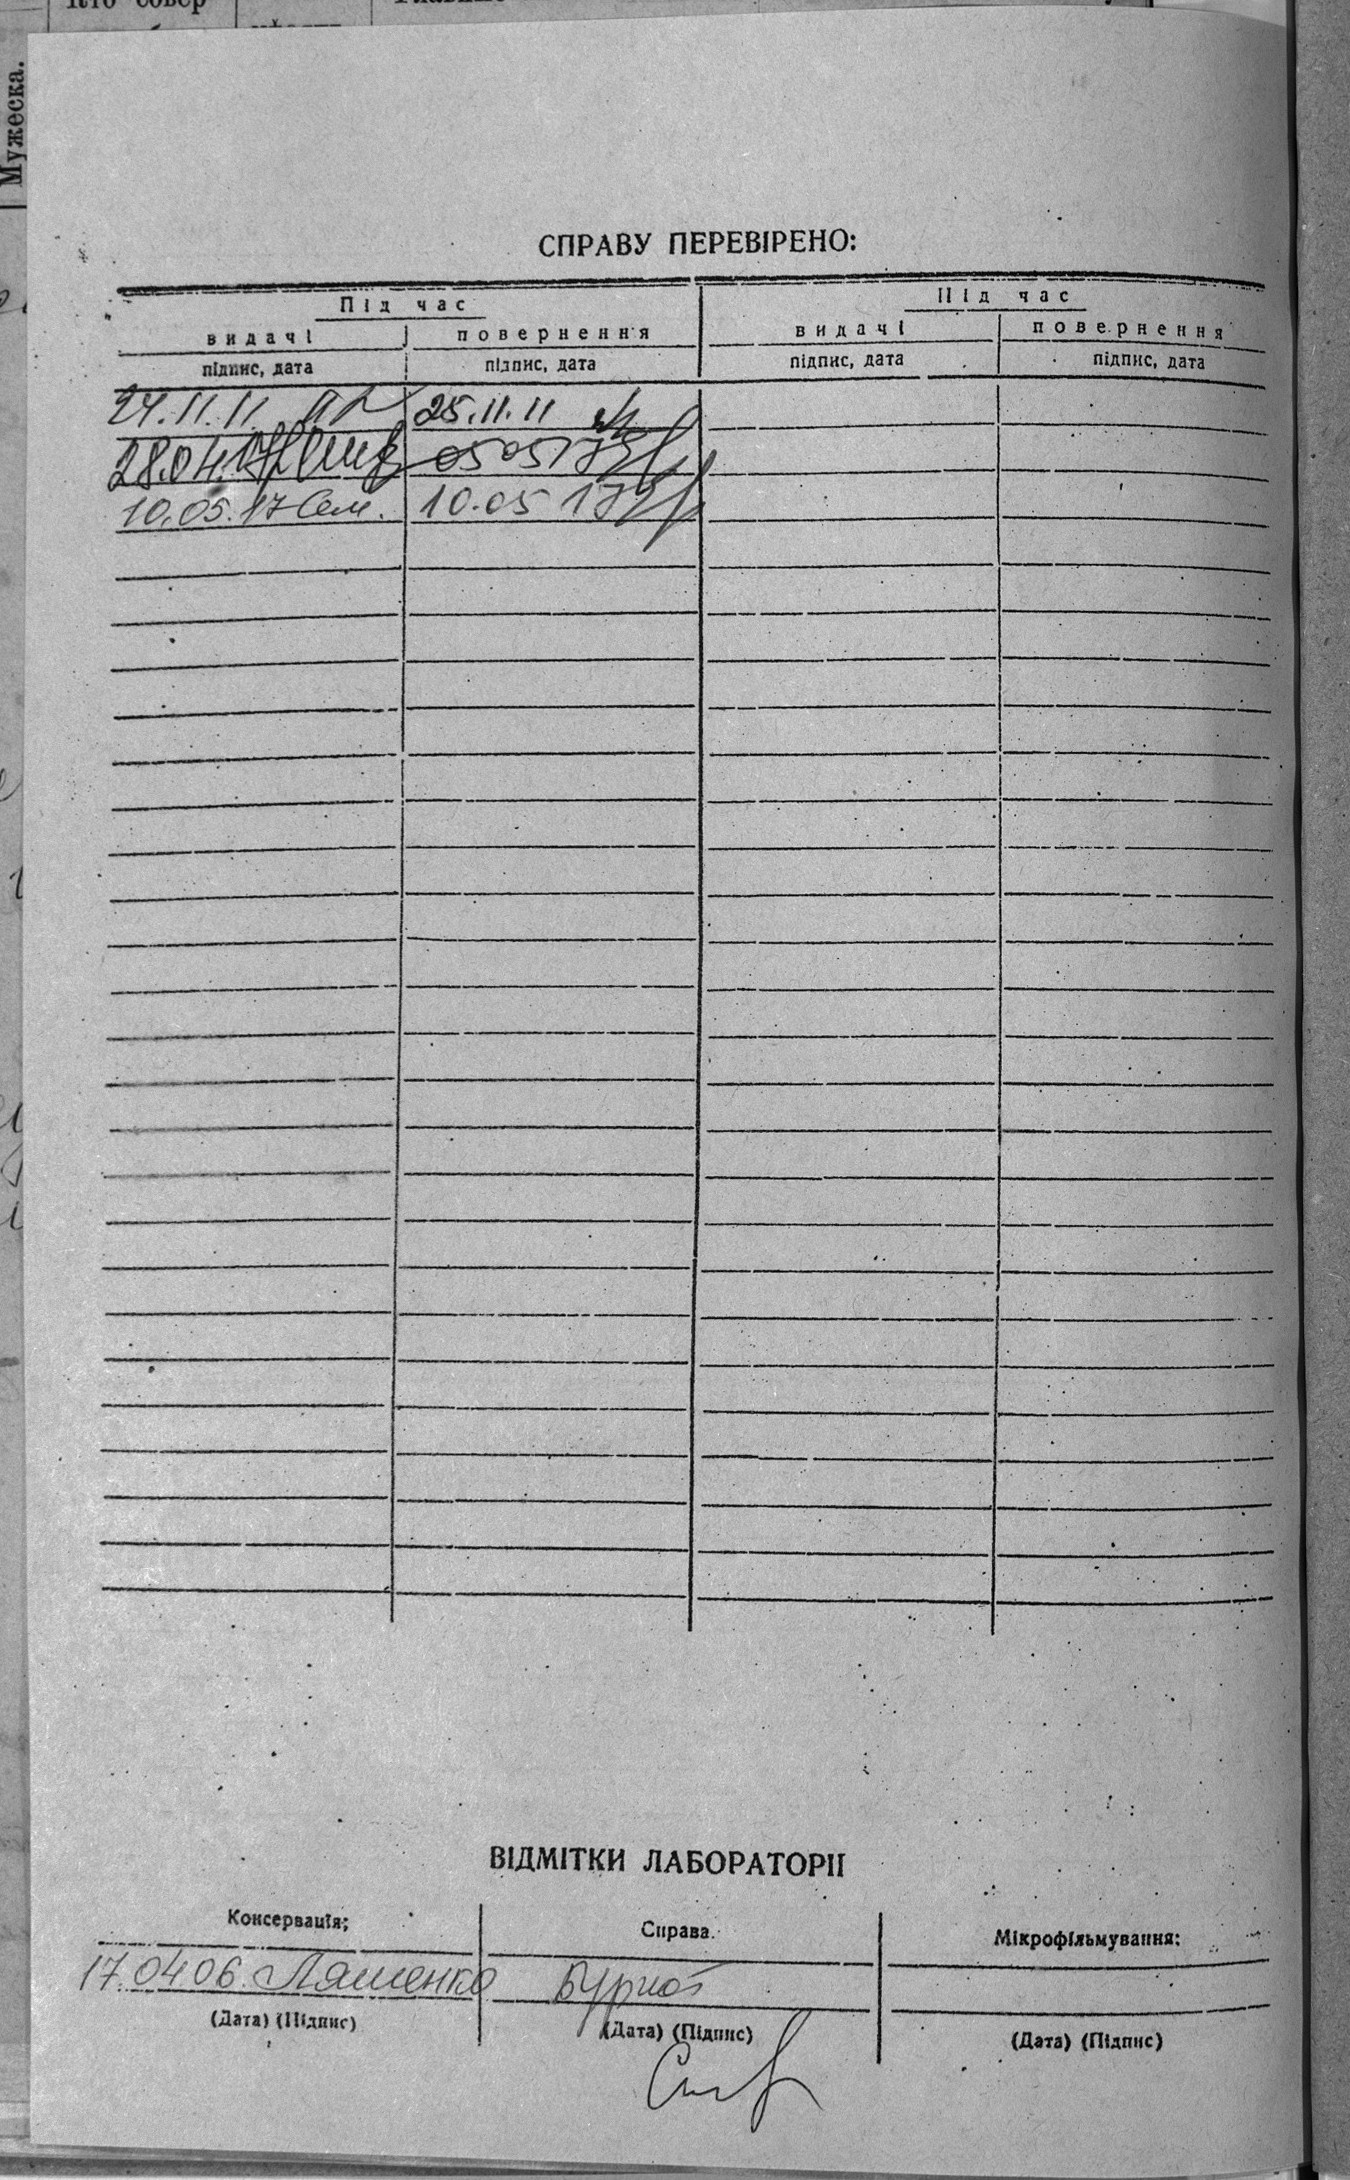 Мужеска.
СПРАВУ ПЕРЕВІРЕНО:
Під час Під час
видачі повернення видачі повернення
підпис, дата підпис, дата підпис, дата підпис, дата
24.11.11 25.11.11
28.04.17 05 05 17
10.05.17 Сем. 10.05 17
ВІДМІТКИ ЛАБОРАТОРІІ
Консервація; Справа. Мікрофільмування:
17.04 06. Ляшенко
(Дата) (Підпис) (Дата) (Підпис) (Дата) (Підпис)